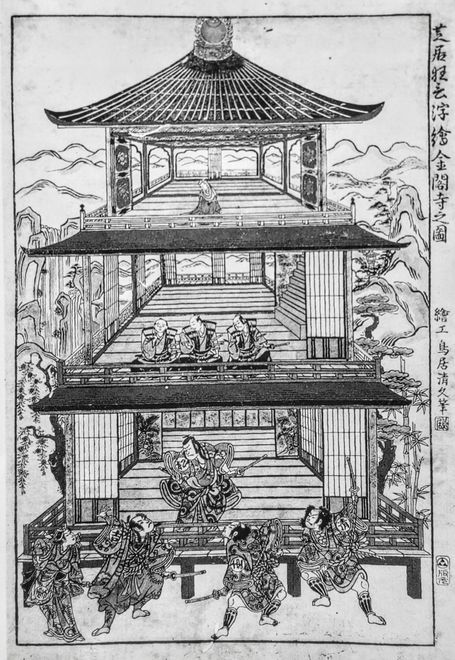 芝居狂言浮繪金閣寺之圖
繪工 鳥居清久筆
版元